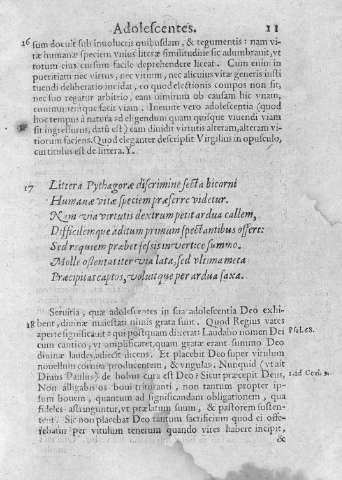 Adolescentes. 11
16 sum docuit sub inuolucris quibusdam, & tegumentis: nam vi-
tæ humanæ speciem vnius literæ similitudine sic adumbrauit, vt
totum eius cursum facile deprehendere liceat. Cum enim in
pueritiam nec virtus, nec vitium, nec alicuius vitæ generis insti
tuendi deliberatio incidat, eo quod electionis compos non sit,
nec suo regatur arbitrio, eam omnium ob causam hic vnam,
continuamque facit viam. Ineunte vero adolescentia (quod
hoc tempus à natura ad eligendum quam quisque viuendi viam
sit ingressurus, datū est) eam diuidit virtutis alteram, alteram vi-
tiorum faciens. Quod eleganter descripsit Virgilius in opusculo,
cui titulus est de litera. Y.
17 Littera Pythagoræ discrimine secta bicorni
Humanæ vitæ speciem præferre videtur.
Nam via virtutis dextrum petit ardua callem,
Difficilemque aditum primum spectantibus offert:
Sed requiem præbet fessis in vertice summo.
Molle ostentat iter via lata, sed vltima meta
Præcipitat captos, voluitque per ardua saxa.
Seruitia, quæ adolescentes in sua adolescentia Deo exhi-
18 bent, diuinæ maiestati nimis grata sunt. Quod Regius vates
aperte significauit: qui postquam dixerat: Laudabo nomen Dei
cum cantico, vt amplificaret, quam gratæ erant summo Deo
diuinæ laudes, adiecit dicens. Et placebit Deo super vitulum
nouellum cornua producentem, & vngulas. Nunquid (vt ait
Diuus Paulus) de bobus cura est Deo? Sicut præcepit Deus,
Non alligabis os boui trituranti, non tantum propter ip-
sum bouem, quantum ad significandam obligationem, qua
fideles astringuntur, vt prælatum suum, & pastorem susten-
tent. Sic non placebat Deo tantum sacrificium quod ei offe-
rebatur per vitulum tenerum quando vites habere incipit,
&